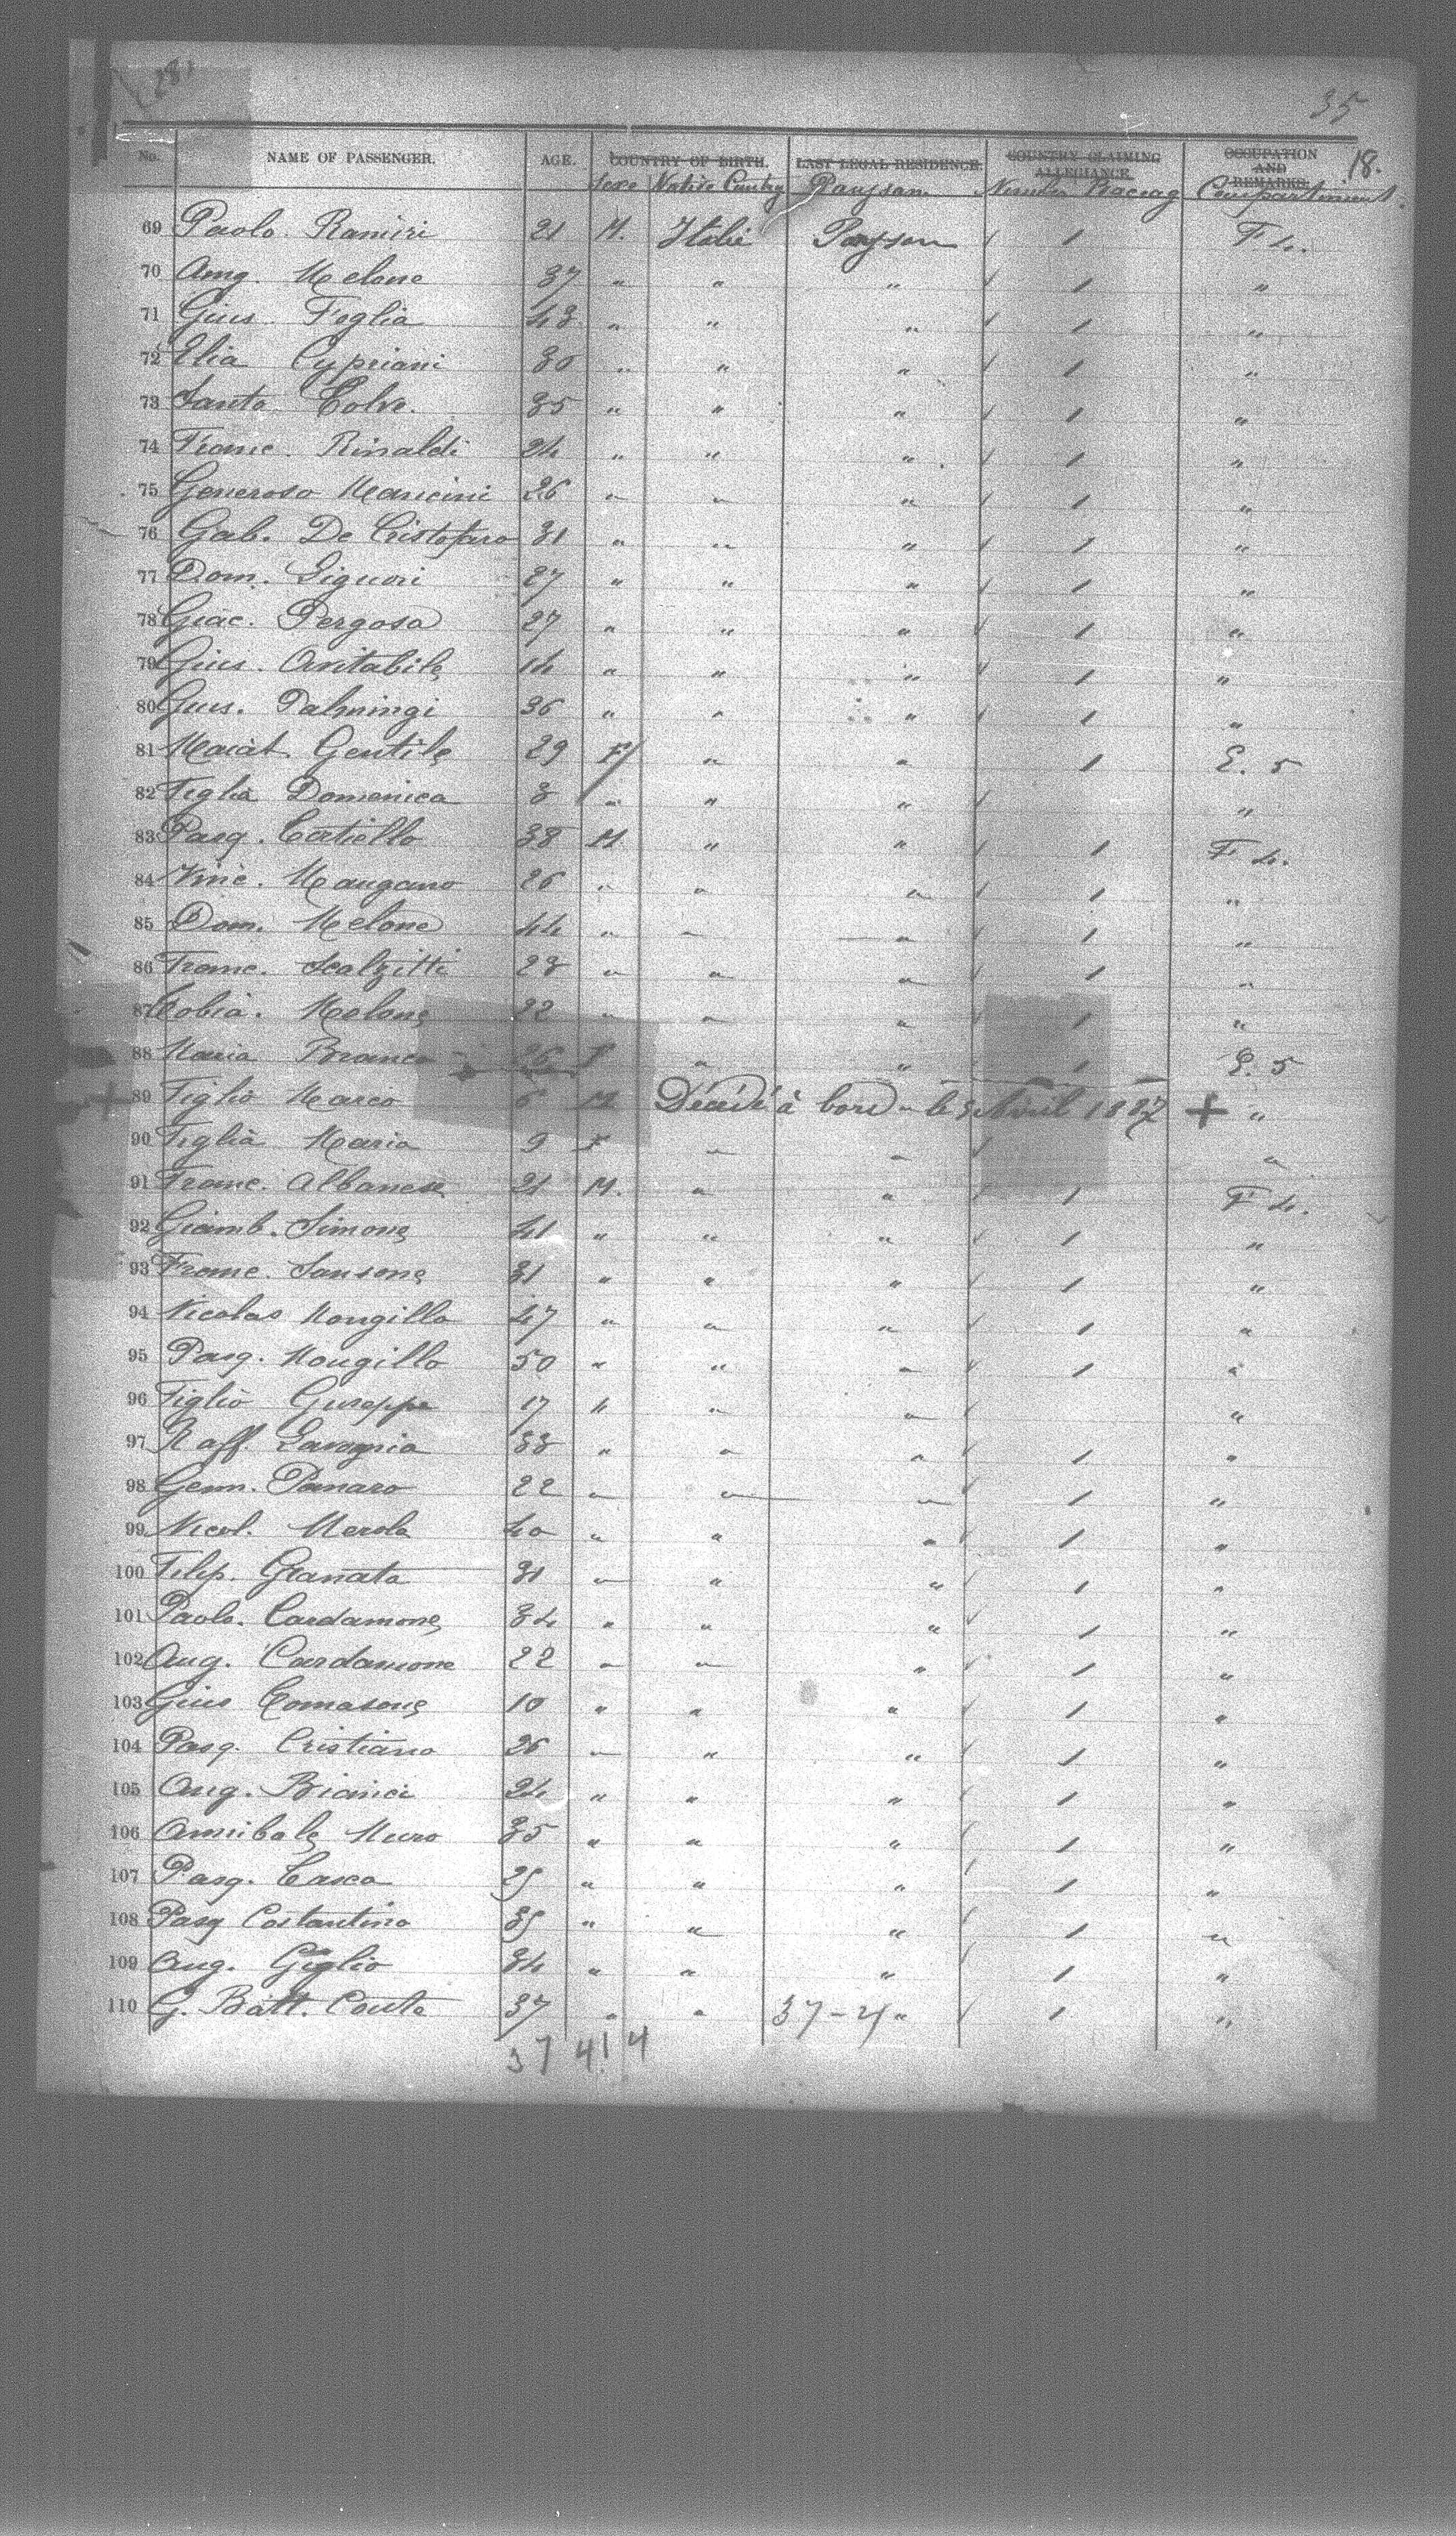 281
35
No. NAME OF PASSENGER. AGE. COUNTRY OF BIRTH. LAST LEGAL RESIDENCE. COUNTRY CLAIMING ALLEGIANCE OCCUPATION AND REMARKS. 18.
Sexe Native Cuntry Paysan Compartiment.
69 Paolo Ranieri 21 M. Italie Paysan 1 F 4.
70 Ang. Melone 37 " " " 1 "
71 Gius. Foglia 43 " " " 1 "
72 Elia Cypriani 30 " " " 1 "
73 Santo 35 " " " 1 "
74 Franc. Rinaldi 24 " " " 1 "
75 Generoso Mancini 26 " " " 1 "
76 Gab. De Cristofaro 31 " " " 1 "
77 Dom. Liguori 27 " " " 1 "
78 Giac. Pergosa 27 " " " 1 "
79 Gius. Avitabile 14 " " " 1 "
80 Gius. Palmingi 36 " " " 1 "
81 Gentile 29 F " " 1 E. 5
82 Figlia Domenica 3 " " " "
83 Pasq. Cortiello 38 M " " 1 F 4.
84 Vinc. Mangano 26 " " " 1 "
85 Dom. Melone 44 " " " 1 "
86 Franc. Scalzitti 23 " " " 1 "
87 Tobia. Melone 22 " " " 1 "
88 Maria Branca 26 F " " 1 E. 5
89 Figlio Marco 6 M Décédé à bord le 3 Avril 1887 + "
90 Figlia Maria 9 F " " "
91 Franc. Albanese 21 M. " " 1 F 4.
92 Giamb. Simone 41 " " " 1 "
93 Franc. Sansone 31 " " " 1 "
94 Nicolas Mongillo 47 " " " 1 "
95 Pasq. Mongillo 50 " " " 1 "
96 Figlio Guseppe 17 " " " "
97 Raff. Lavognia 33 " " " 1 "
98 Genn. Panaro 22 " " " 1 "
99 Nicol. Merola 40 " " " 1 "
100 Filip. Granata 31 " " " 1 "
101 Paolo. Cardamone 34 " " " 1 "
102 Aug. Cardamone 22 " " " 1 "
103 Gius Tomasone 10 " " " 1 "
104 Pasq. Cristiano 26 " " " 1 "
105 Ang. Bianci 24 " " " 1 "
106 Annibale Muro 35 " " " 1 "
107 Pasq. Casca 25 " " " 1 "
108 Pasq Costantino 35 " " " 1 "
109 Aug. Giglio 34 " " " 1 "
110 G. Batt. Conte 37 " " 37-4 " 1 "
37 4! 4